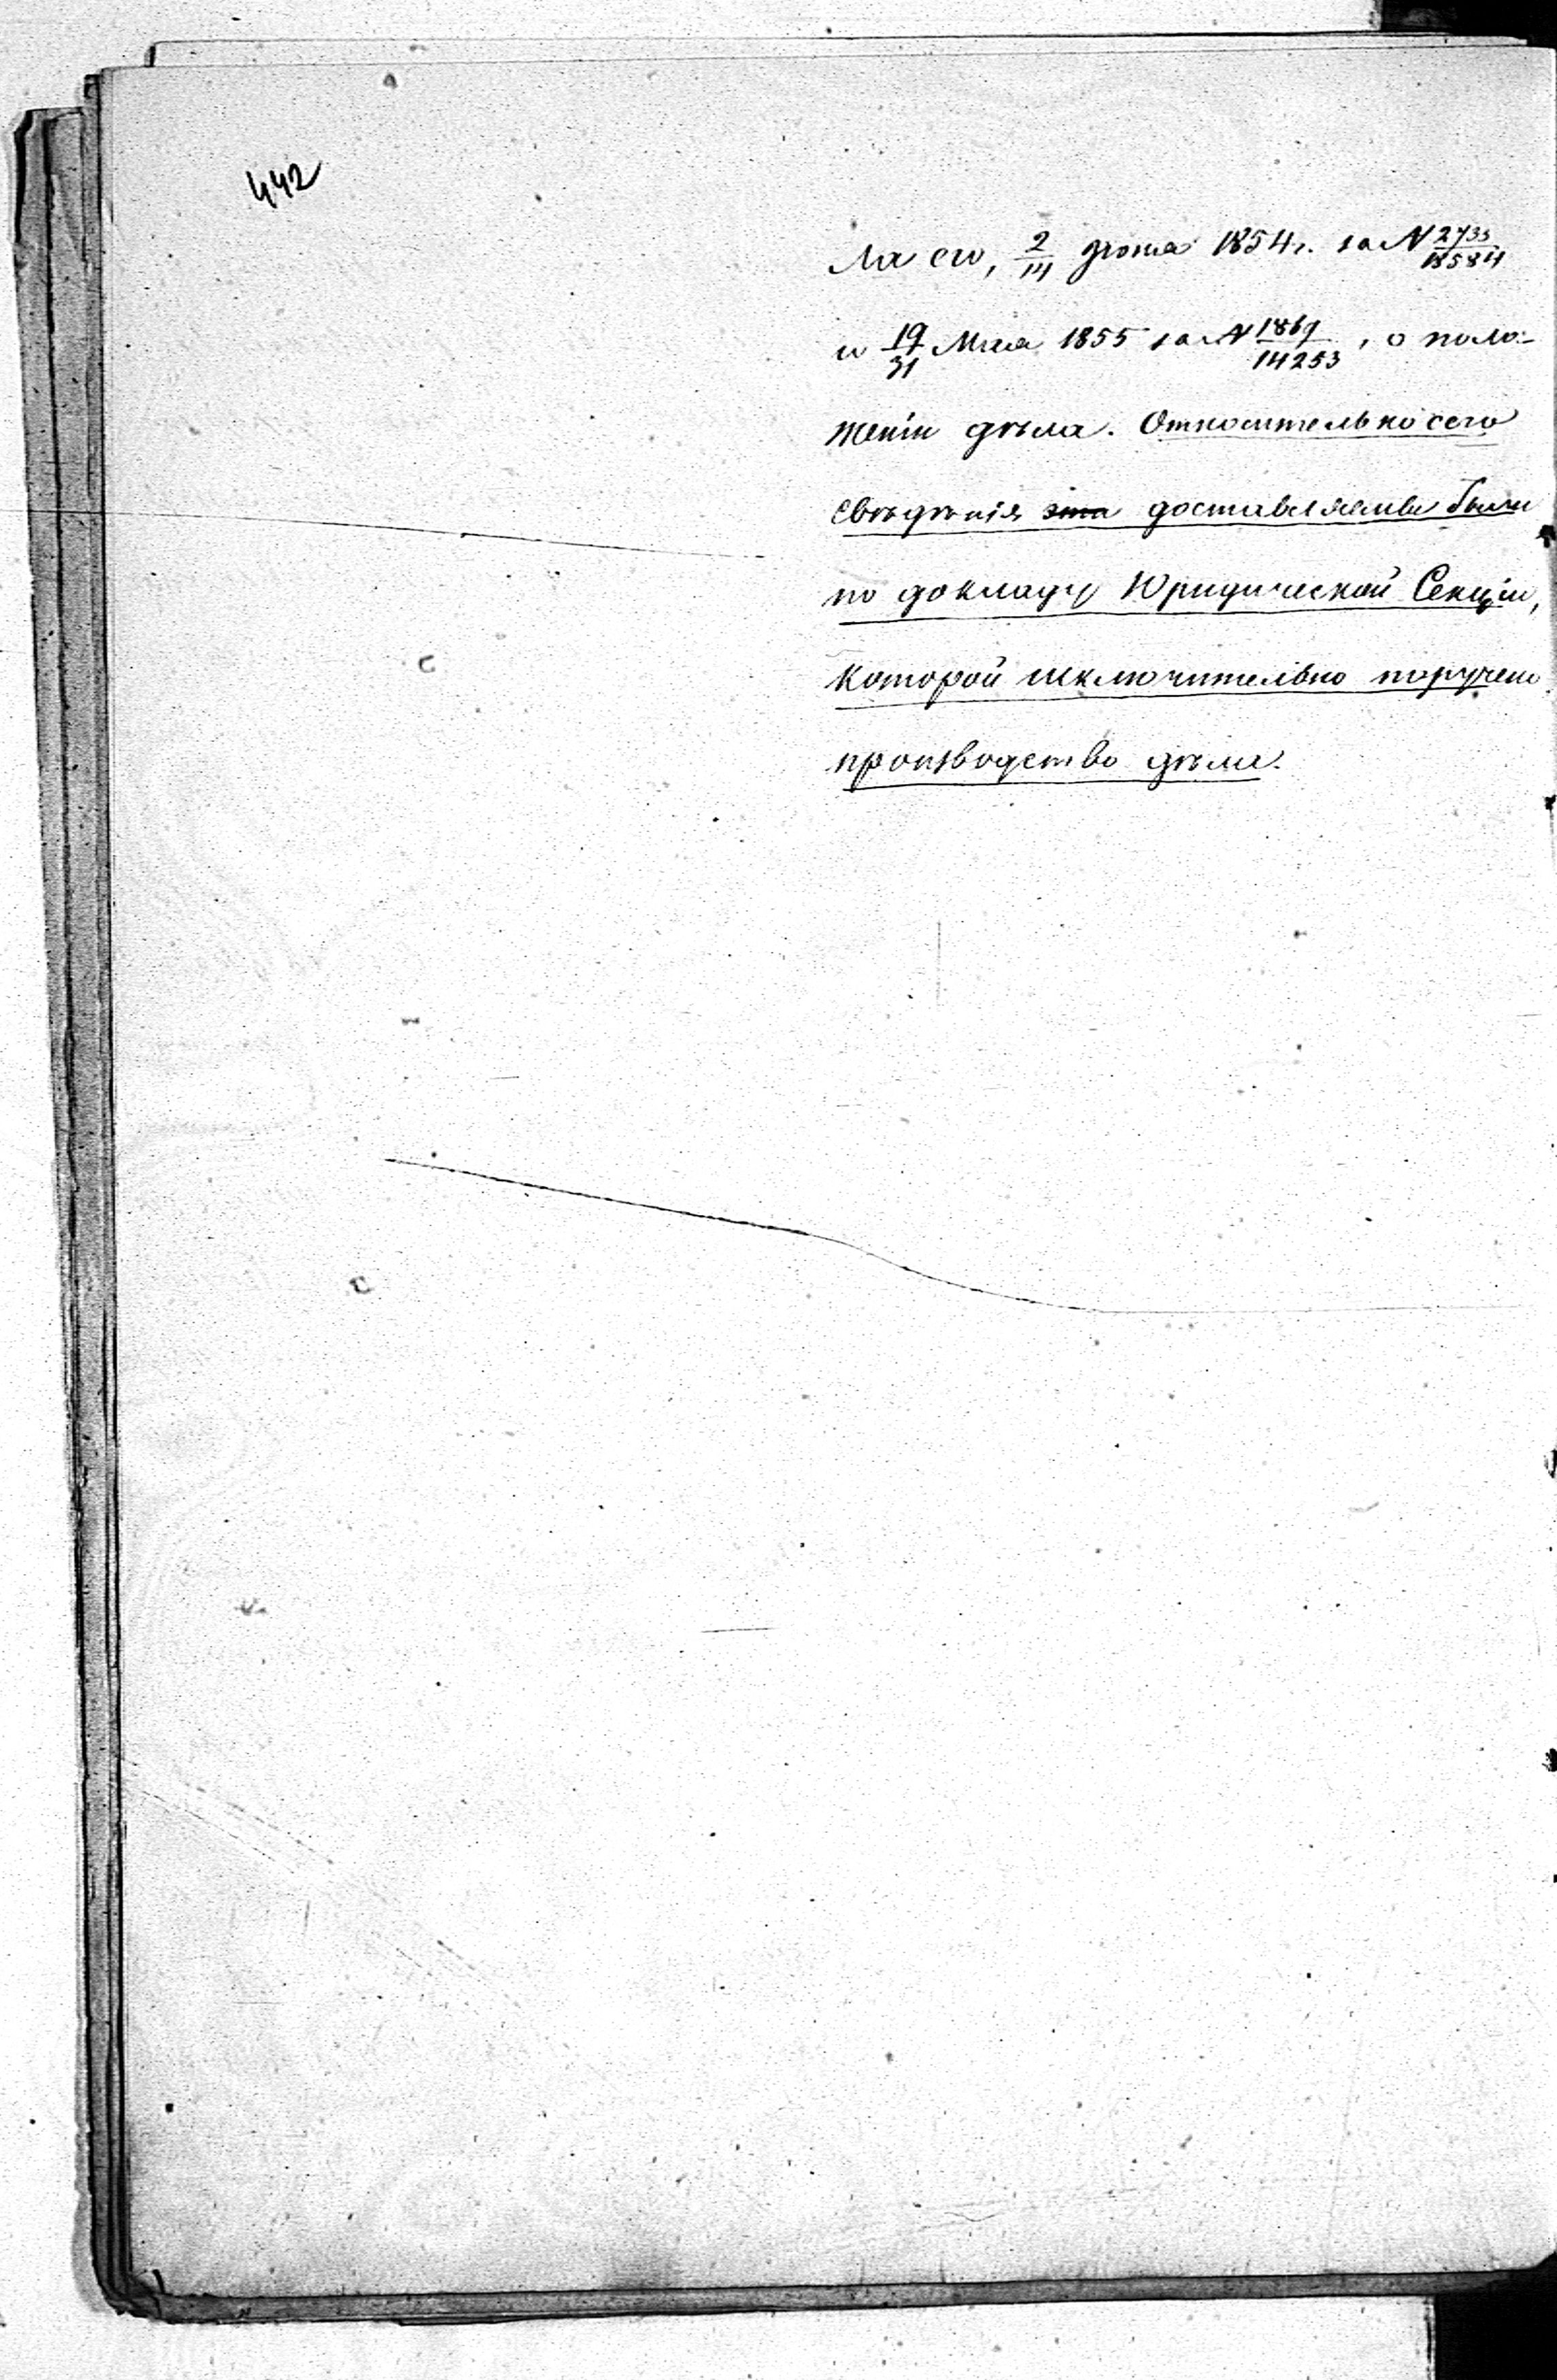 442
ла его, 2/14 Іюня 1854 г. за N 2733/18584
и 19/31 Мая 1855 за N 1869/14253, о поло-
женіи дѣла. Относительно сего
свѣдѣнія эти доставляемы были
по докладу Юридической Секціи,
которой исключительно поручено
производство дѣла.